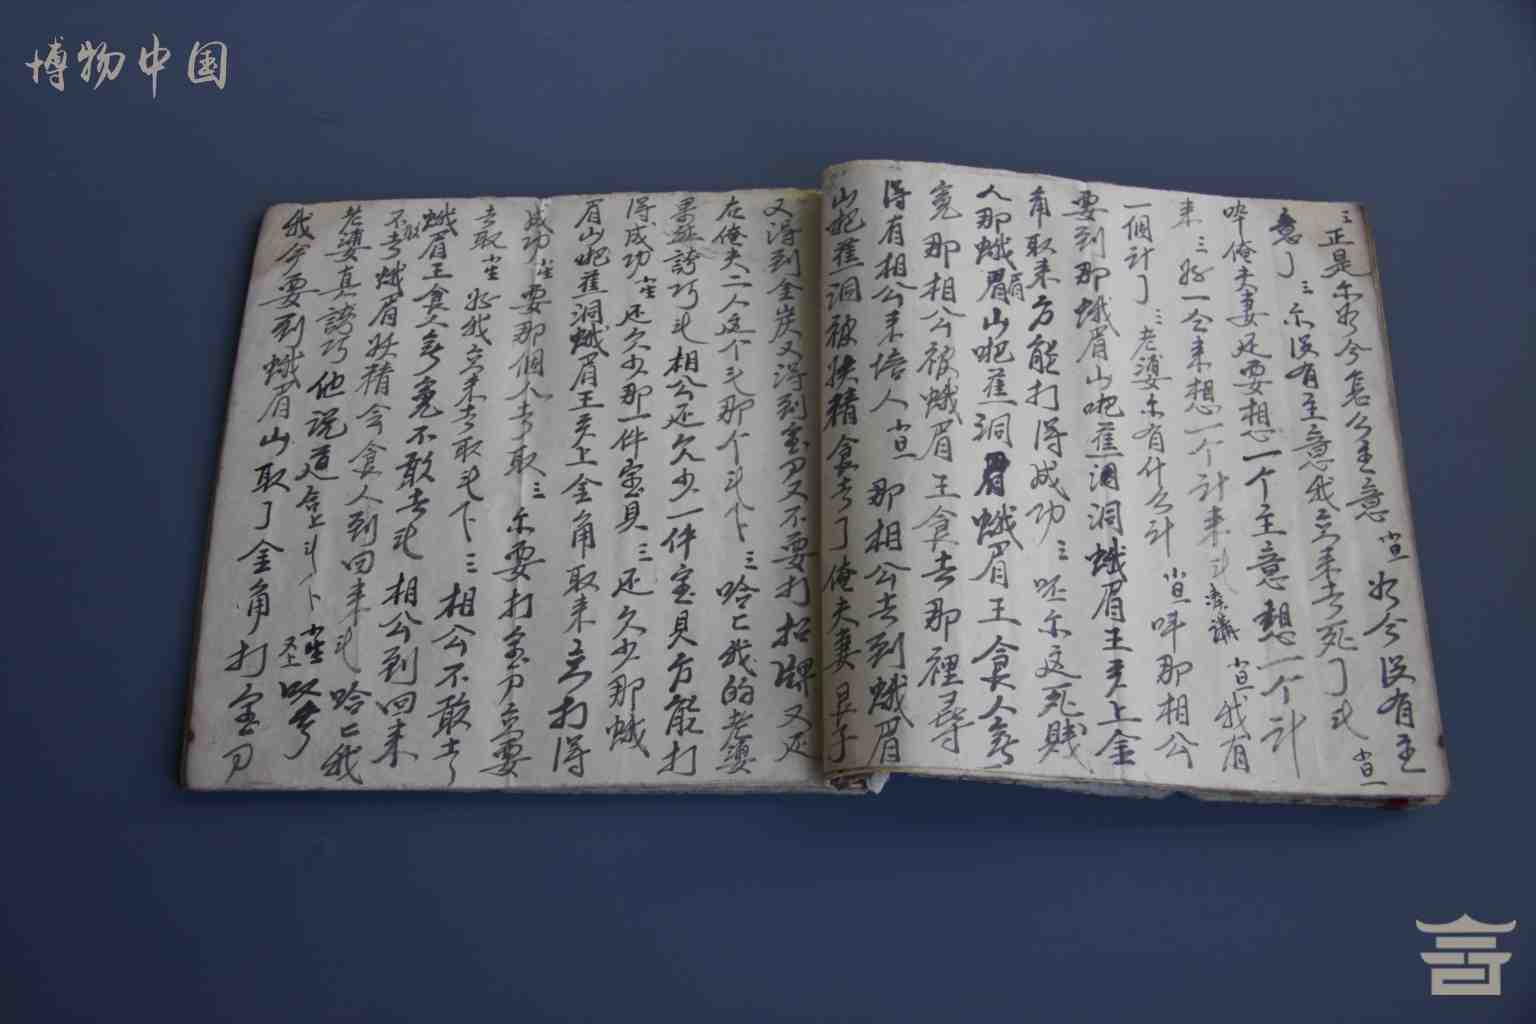 博物中国
三正是尔如今怎么主意 小旦 如今没有主
意了 三 尔没有主意我立来去死了 小旦
呌俺夫妻还要想一个主意想一个计
来 三 好一仝来想一个计来 小旦 我有
一個计了 三 老婆尔有什么计 小旦 呌那相公
要到那蛾眉山吧蕉洞洞蛾眉王头上金
角取来方能打得成功 三 呸尔这死賎
人那蛾眉山吧蕉洞眉蛾眉王食人无
寃那相公被蛾眉王食去那裡尋
得有相公来悟人 小旦 那相公去到蛾眉
山吧蕉洞被妖精食去了俺夫妻
又得到金炭又得到宝刀又不要打招牌又还
在俺夫二人这个 那个 三 哈匕我的老婆
果 誇巧 相公还欠少一件宝貝方能打
得成功 生 还欠少那一件宝貝 三 还欠少那蛾
眉山吧蕉洞蛾眉王头上金角取来立打得
成功 生 要那個人去取 三 尔要打宝刀立要
去取 生 好我立来去取 下 三 相公不敢去
蛾眉王食人无寃不敢去 相公到回来
不去蛾眉妖精会食人到回来 哈匕我
老婆真誇巧他说道 以
我今要到蛾眉山取了金角打宝刀